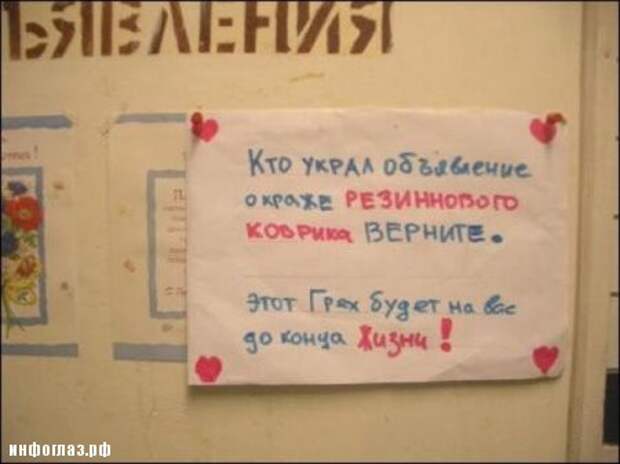 ЪЯВЛЕНИЯ
Кто украл объявление
о краже РЕЗИННОВОГО
КОВРИКА ВЕРНИТЕ.
Этот Грех будет на Вас
до конца Жизни!
инфоглаз.рф